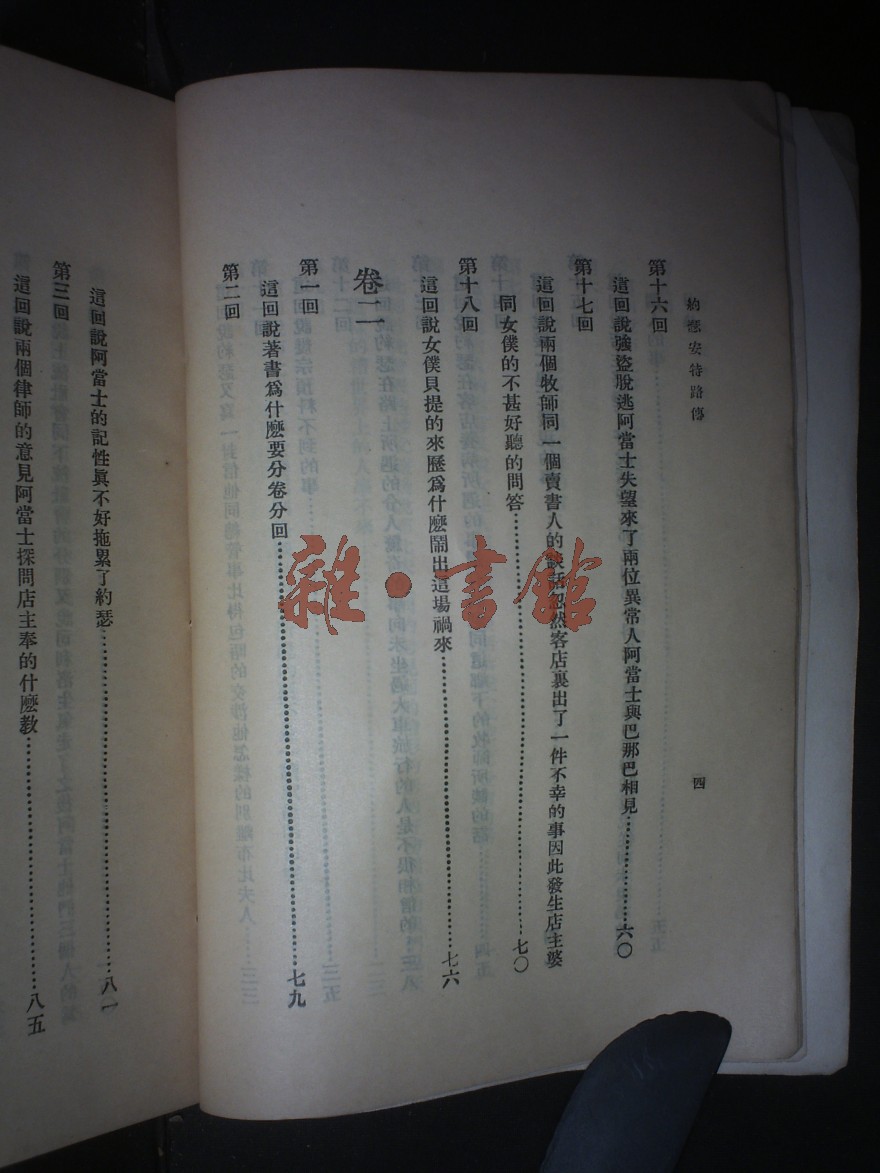 約瑟安特路傳
四
第十六回
這回說強盜脫逃阿當士失望來了兩位異常人阿當士與巴那巴相見……六〇
第十七回
這回說兩個牧師同一個賣書人的談話忽然客店裏出了一件不幸的事因此發生店主婆
同女僕的不甚好聽的問答……七〇
第十八回
這回說女僕貝提的來歷爲什麽鬧出這場禍來……七六
卷二
第一回
這回說著書爲什麽要分卷分回……七九
第二回
這回說阿當士的記性眞不好拖累了約瑟……八一
第三回
這回說兩個律師的意見阿當士探問店主奉的什麽教……八五
雜·書館